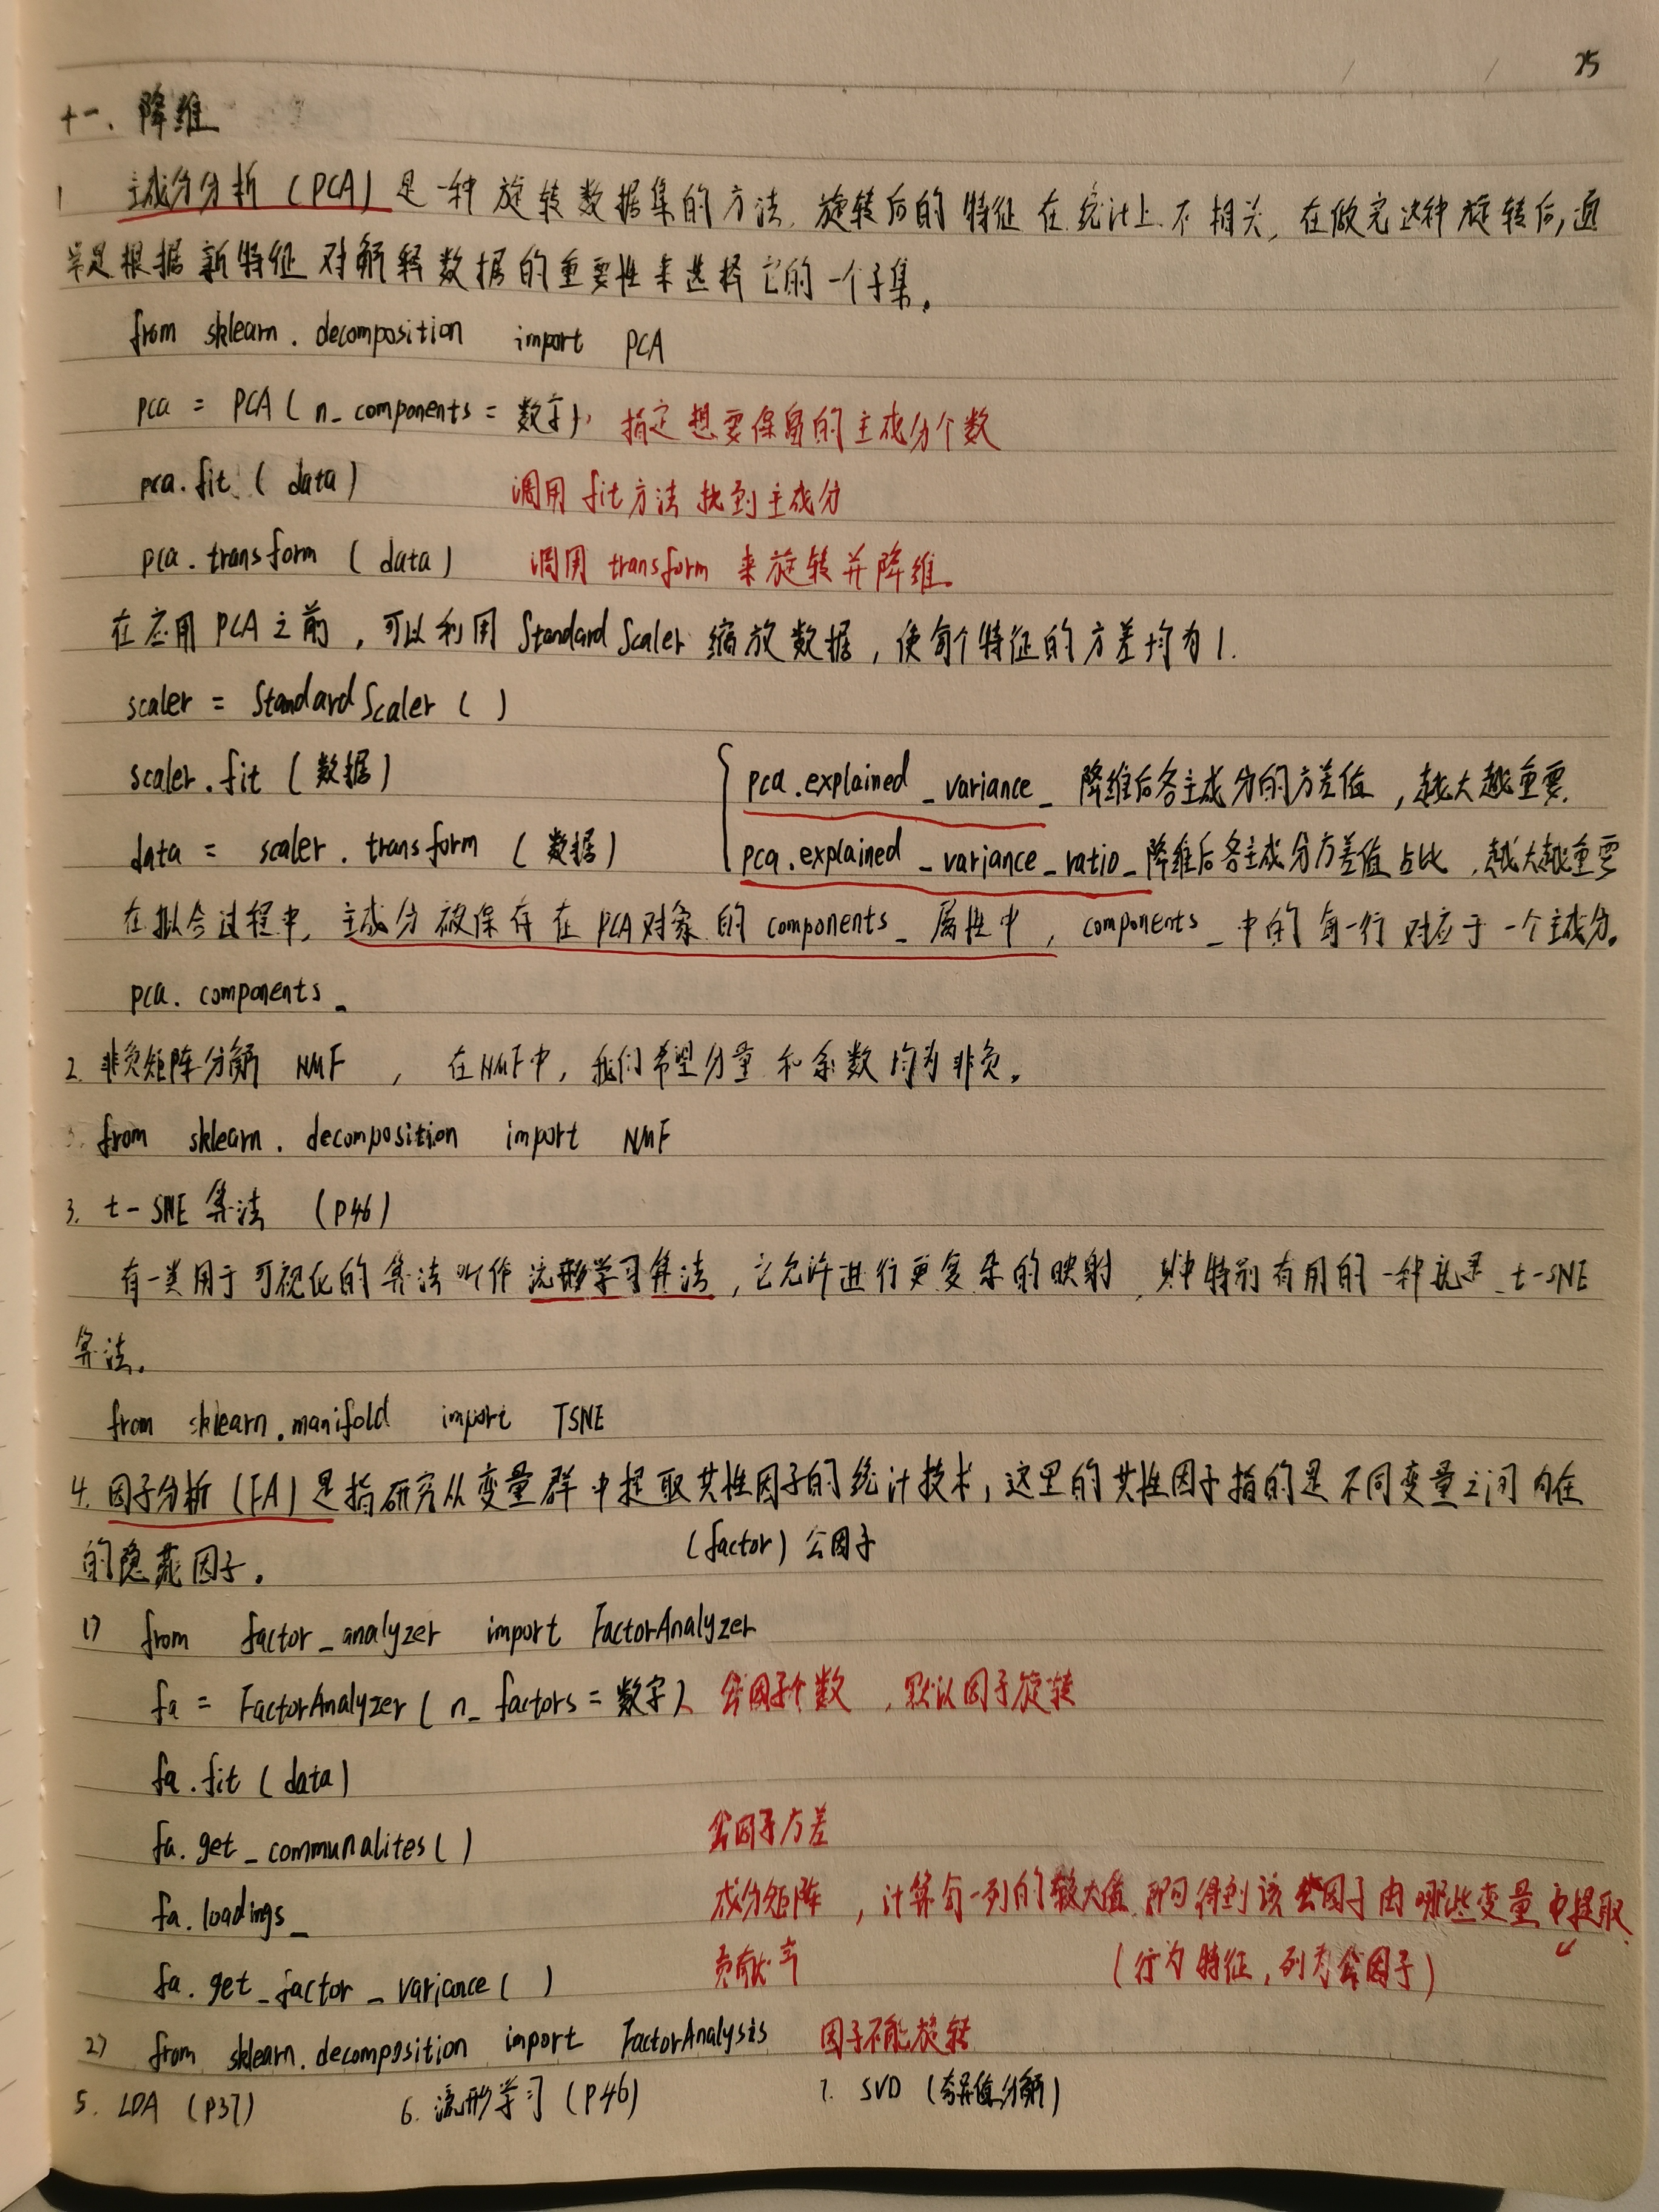 25
十一、降维
1 主成分分析(PCA)是一种旋转数据集的方法,旋转后的特征在统计上不相关,在做完这种旋转后,通
常是根据新特征对解释数据的重要性来选择它的一个子集。
from sklearn.decomposition import PCA
pca = PCA(n_components = 数字), 指定想要保留的主成分个数
pca.fit(data) 调用fit方法找到主成分
pca.transform(data) 调用transform来旋转并降维。
在应用PCA之前,可以利用StandardScaler缩放数据,使每个特征的方差均为1.
scaler = StandardScaler()
scaler.fit(数据) pca.explained_variance_ 降维后各主成分的方差值,越大越重要.
data = scaler.transform(数据) pca.explained_variance_ratio_降维后各主成分方差值占比,越大越重要
在拟合过程中,主成分被保存在PCA对象的components_属性中,components_中的每一行对应于一个主成分。
pca.components_
2. 非负矩阵分解 NMF ,在NMF中,我们希望分量和系数均为非负。
from sklearn.decomposition import NMF
3. t-SNE算法 (P46)
有一类用于可视化的算法叫作流形学习算法,它允许进行更复杂的映射,其中特别有用的一种就是t-SNE
算法。
from sklearn.manifold import TSNE
4. 因子分析(FA)是指研究从变量群中提取共性因子的统计技术,这里的共性因子指的是不同变量之间内在
的隐藏因子。 (factor)公因子
1) from factor_analyzer import FactorAnalyzer
fa = FactorAnalyzer(n_factors = 数字) 公因子个数,默认因子旋转
fa.fit(data)
fa.get_communalites() 公因子方差
fa.loadings_ 成分矩阵,计算每一列的较大值,即可得到该公因子由哪些变量中提取
fa.get_factor_variance() 贡献率 (行为特征,列为公因子)
2) from sklearn.decomposition import FactorAnalysis 因子不能旋转
5. LDA (P37) 6. 流形学习(P46) 7. SVD (奇异值分解)